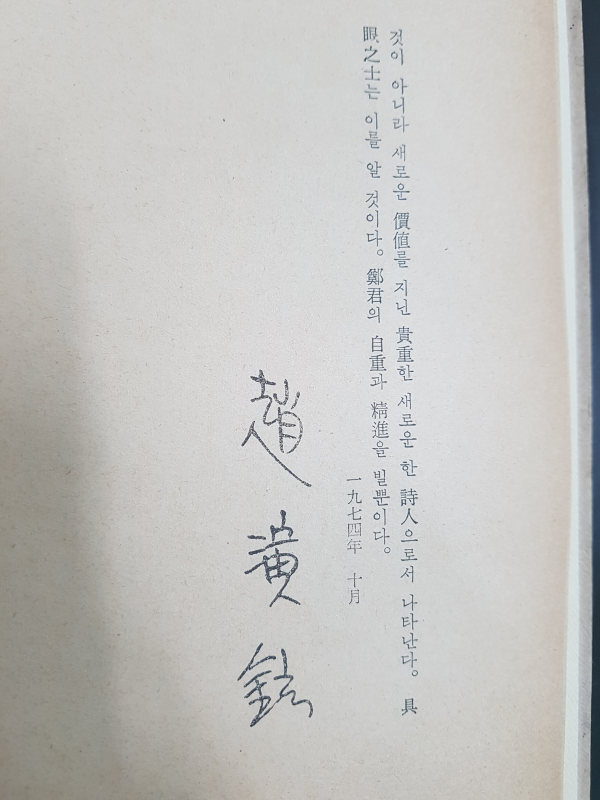 것이 아니라 새로운 價值를 지닌 貴重한 새로운 한 詩人으로서 나타난다。 具
眼之士는 이를 알 것이다。 鄭君의 自重과 精進을 빌뿐이다。
一九七四年 十月
趙演鉉